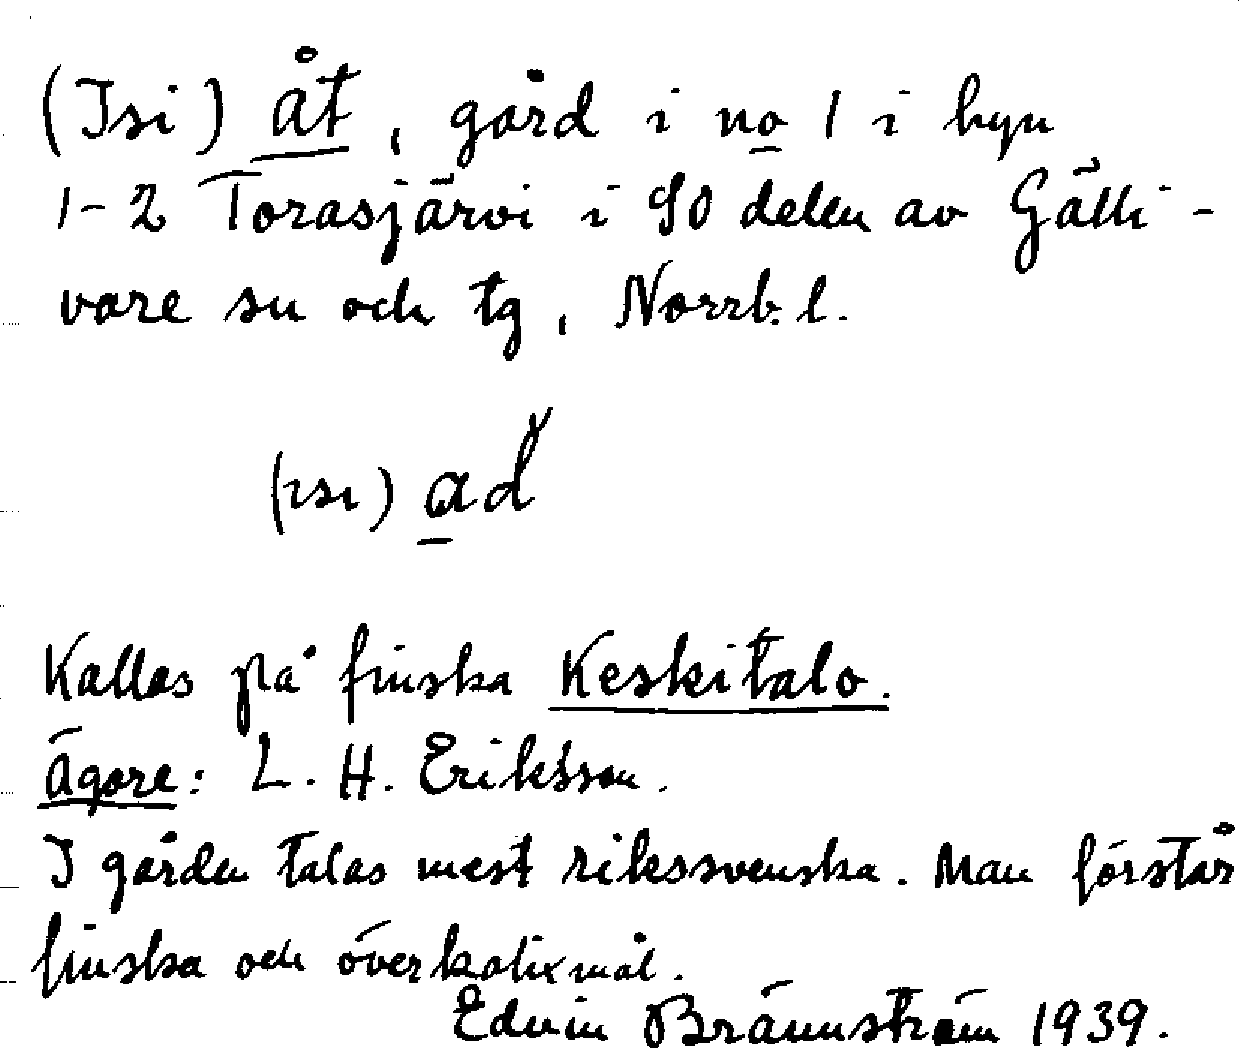 (Isi) åt, gård i no 1 i byn
1-2 Torasjärvi i SO delen av Gälli-
vare sn och tg, Norrb. l.
(ɪsɪ) ad
Kallas på finska Keskitalo.
Ägare: L. H. Eriksson.
I gården talas mest rikssvenska. Man förstår
finska och överkalixmål.
Edvin Brännström 1939.